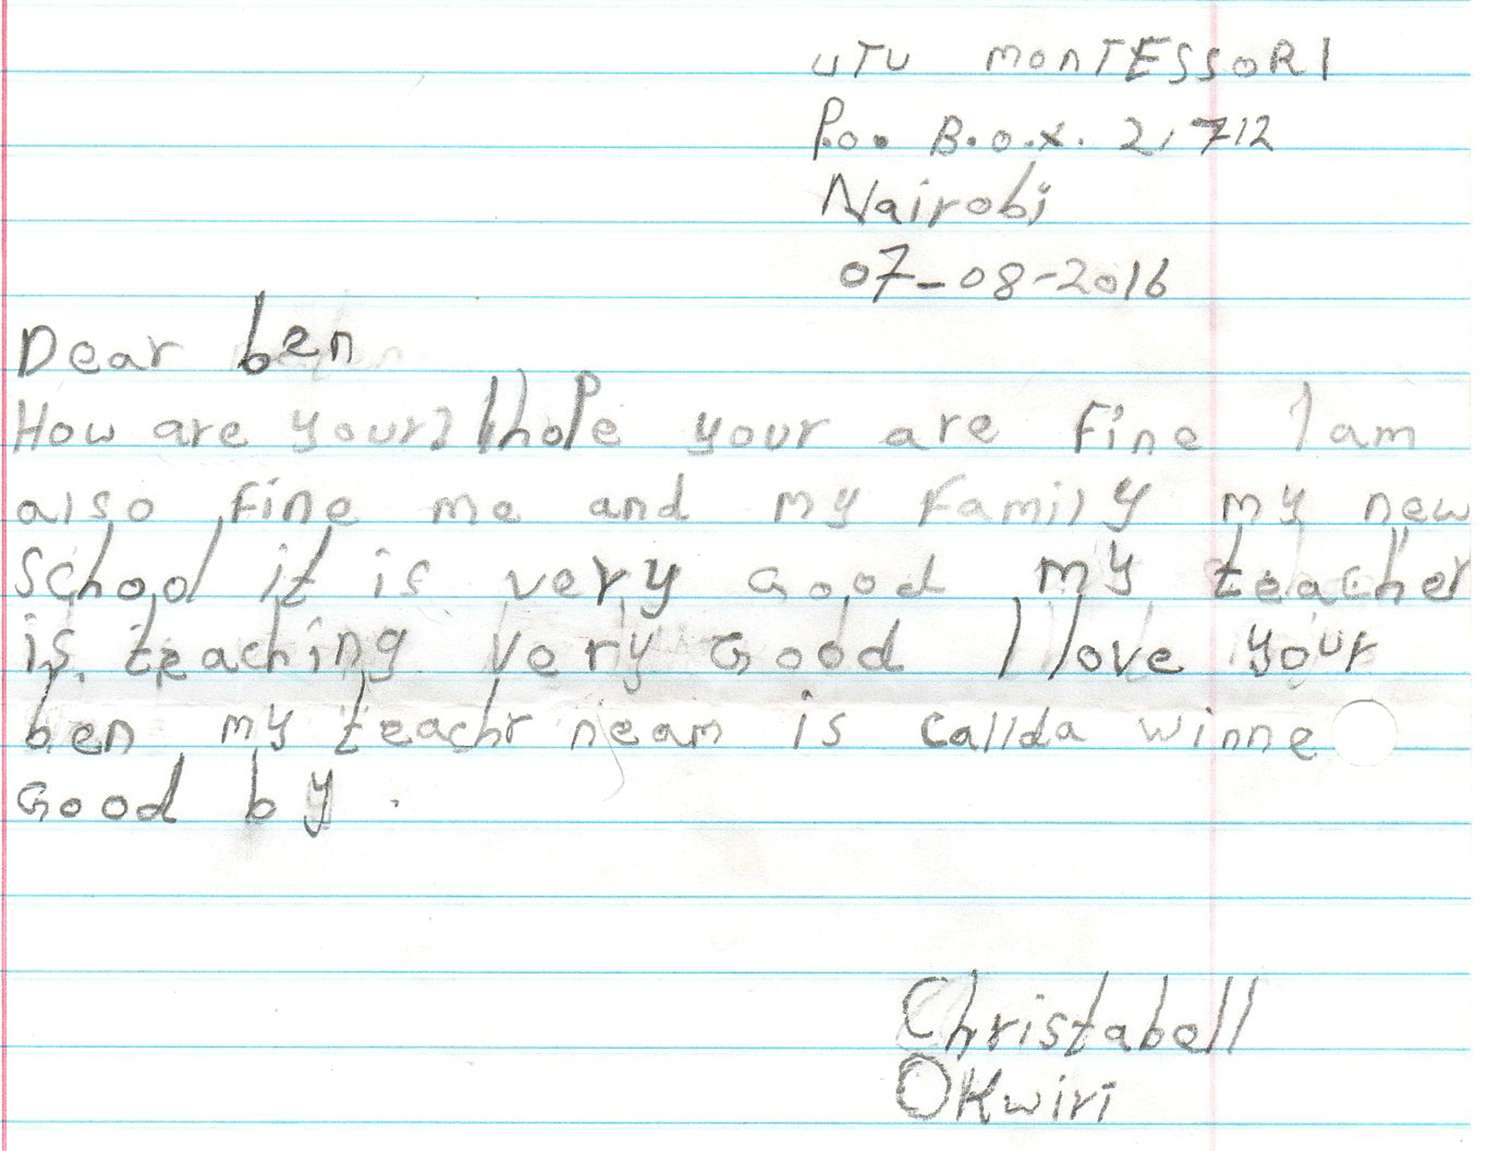 uTU monTESSORI
P.o. B.o.x. 21712
Nairobi
07-08-2016
Dear ben
How are your? I hope your are fine I am
also fine me and my Family my new
School it is very Good my teacher
is teaching very Good I love your
ben my teachr neam is callda winne
Good by.
Christabell
Okwiri